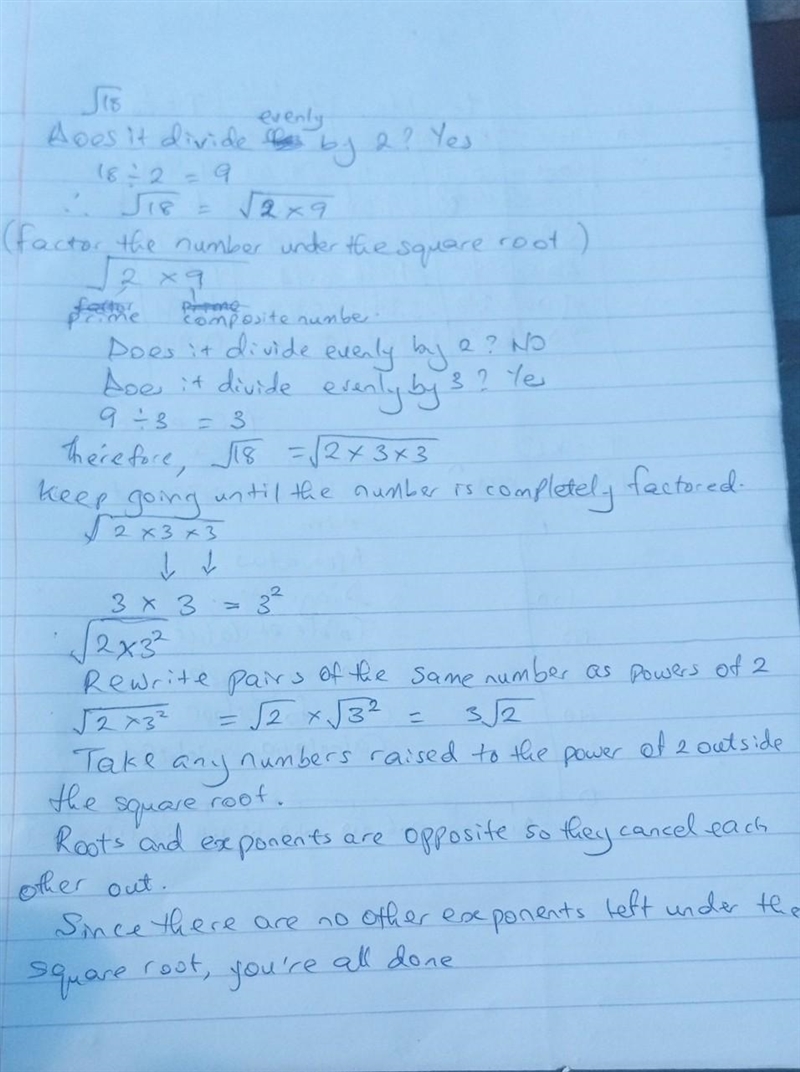 √18
evenly
Does it divide by 2? Yes
18 ÷ 2 = 9
∴ √18 = √2 × 9
(factor the number under the square root)
√2 × 9
prime composite number.
Does it divide evenly by 2? NO
Does it divide evenly by 3? Yes
9 ÷ 3 = 3
therefore, √18 = √2 × 3 × 3
Keep going until the number is completely factored.
√2 × 3 × 3
↓ ↓
3 × 3 = 3²
√2 × 3²
Rewrite pairs of the same number as powers of 2
√2 × 3² = √2 × √3² = 3√2
Take any numbers raised to the power of 2 outside
the square root.
Roots and exponents are opposite so they cancel each
other out.
Since there are no other exponents left under the
square root, you're all done